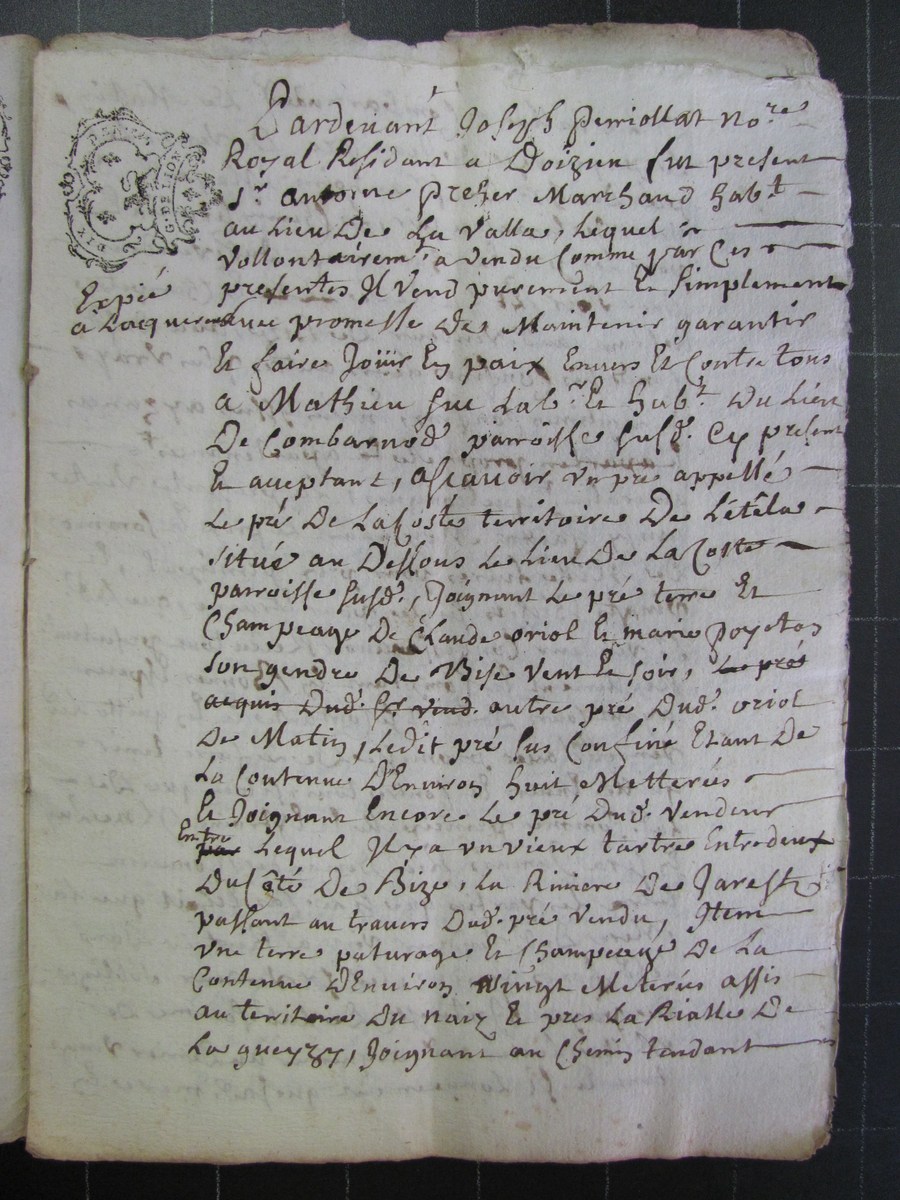 Pardeuant Joseph Perriollat no.re
Royal Residant a Doizieu fut present
S.r antoine Preher Marchand hab.t
au Lieu De La Valla, Lequel
Vollontairem.t a vendu Comme par Ces
presentes Il Vend purement Et simplement
Expié
a Lacquereur
auec promesse De Maintenir garantir
Et faire Joüir En paix Enuers Et Contre tous
a Mathieu suc Lab.r Et hab.t Du Lieu
De Combarnod parroisse susd. Cy present
Et acceptant, ascauoir vn pré appellé
Le pré De La Coste territoire De
situé au Dessous Le Lieu De La Coste
parroisse susd., Joignant Le pré terre Et
Champeage De Claude oriol Et marie
son gendre De Bise vent Et soir, Le pré
acquis Dud. Sr vend. autre pré Dud. oriol
De Matin, Ledit pré sus Confiné Etant De
La Contenue D'Enuiron huit Metterés
Et Joignant Encore Le pré Dud. Vendeur
Entre
par Lequel Il y a vn vieux tartre Entredeux
Du Côté De Bize, La Riuiere De Jarest
passant au trauers Dud. pré vendu, Item
vne terre paturage Et Champeage De La
Contenue D'Enuiron vingt Meterés assis
au territoire Du naiz Et pres La Rialle De
La, Joignant au Chemin tandant